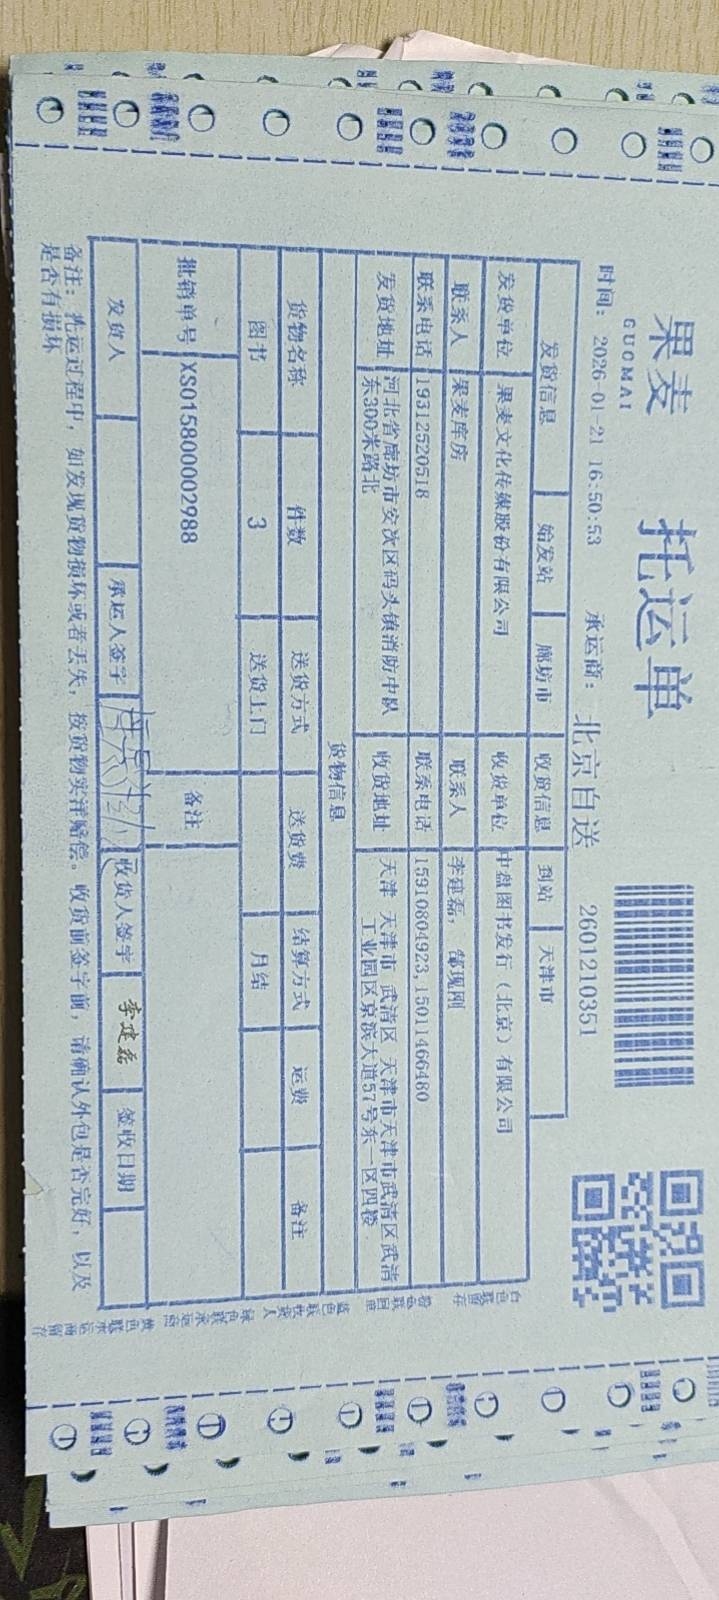 果麦
GUOMAI
托运单
时间： 2026-01-21 16:50:53 承运商： 北京自送 2601210351
发货信息 始发站 廊坊市 收货信息 到站 天津市
发货单位 果麦文化传媒股份有限公司 收货单位 中盘图书发行（北京）有限公司
联系人 果麦库房 联系人 李建磊， 郜现刚
联系电话 19312520518 联系电话 15910804923,15011466480
发货地址 河北省廊坊市安次区码头镇消防中队
东300米路北
收货地址 天津 天津市 武清区 天津市天津市武清区武清
工业园区京滨大道57号东一区四楼
货物信息
货物名称 件数 送货方式 送货费 结算方式 运费 备注
图书 3 送货上门 月结
批销单号 XS015800002988 备注
发货人 承运人签字 收货人签字 李建磊 签收日期
备注：托运过程中，如发现货物损坏或者丢失，按货物实洋赔偿。收货前签字前，请确认外包是否完好，以及
是否有损坏
白色联留存 粉色联回单 蓝色联收货人 绿色联承运商 黄色联承运商留存